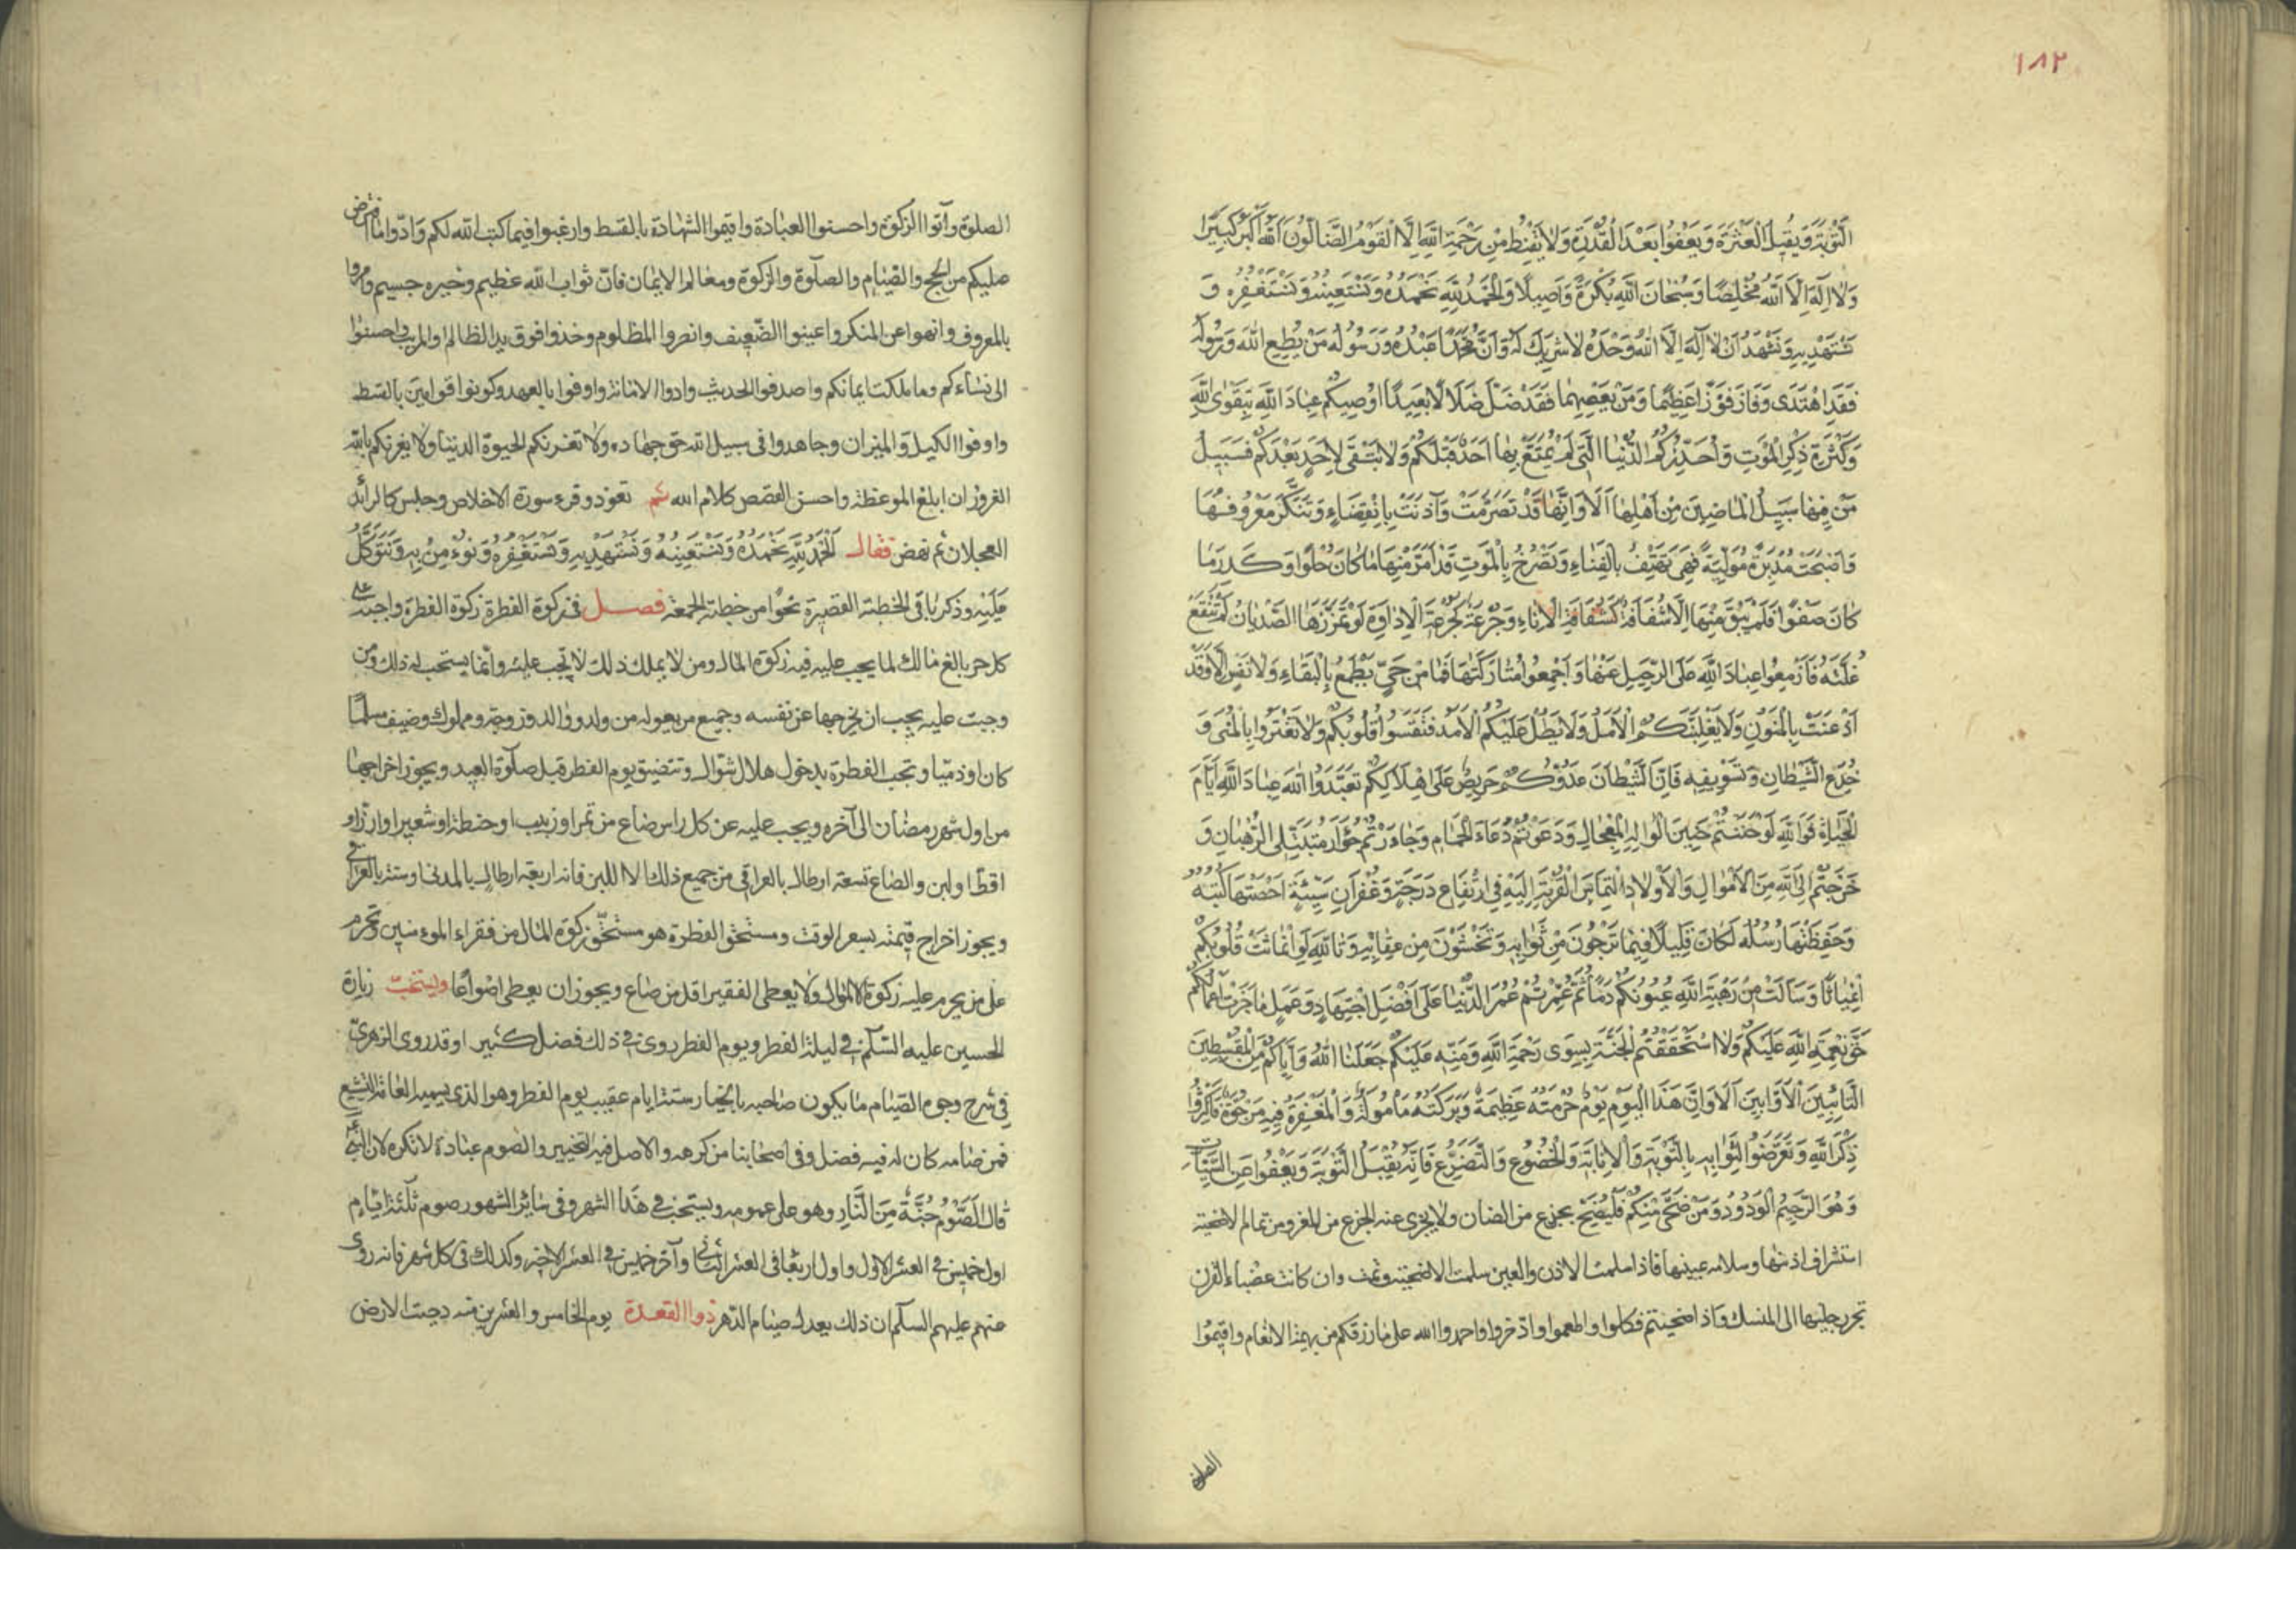 ١٨٢
التَّوْبَةَ وَيُقِيلُ الْعَثْرَةَ وَيَعْفُوا بَعْدَ الْقُدْرَةِ وَلَا يَقْنَطُ مِنْ رَحْمَةِ اللهِ إِلَّا الْقَوْمُ الضَّالُّونَ اَللهُ أَكْبَرُ كَبِيرًا
وَلَا إِلَهَ إِلَّا اللهُ مُخْلِصًا وَسُبْحَانَ اللهِ بُكْرَةً وَأَصِيلًا وَالْحَمْدُ لِلَّهِ نَحْمَدُهُ وَنَسْتَعِينُهُ وَنَسْتَغْفِرُهُ وَ
نَسْتَهْدِيهِ وَنَشْهَدُ أَنْ لَا إِلَهَ إِلَّا اللهُ وَحْدَهُ لَا شَرِيكَ لَهُ وَأَنَّ مُحَمَّدًا عَبْدُهُ وَرَسُولُهُ مَنْ يُطِعِ اللهَ وَرَسُولَهُ
فَقَدِ اهْتَدَى وَفَازَ فَوْزًا عَظِيمًا وَمَنْ يَعْصِهِمَا فَقَدْ ضَلَّ ضَلَالًا بَعِيدًا أُوصِيكُمْ عِبَادَ اللهِ بِتَقْوَى اللهِ
وَكَثْرَةِ ذِكْرِ الْمَوْتِ وَأُحَذِّرُكُمُ الدُّنْيَا الَّتِي لَمْ يُمَتَّعْ بِهَا أَحَدٌ قَبْلَكُمْ وَلَا تَبْقَى لِأَحَدٍ بَعْدَكُمْ فَسَبِيلُ
مَنْ فِيهَا سَبِيلُ الْمَاضِينَ مِنْ أَهْلِهَا أَلَا وَإِنَّهَا قَدْ تَصَرَّمَتْ وَآذَنَتْ بِانْقِضَاءٍ وَتَنَكَّرَ مَعْرُوفُهَا
وَأَصْبَحَتْ مُدْبِرَةً مُوَلِّيَةً فَهِيَ تَهْتِفُ بِالْفَنَاءِ وَتَصْرُخُ بِالْمَوْتِ قَدْ أَمَرَّ مِنْهَا مَا كَانَ حُلْوًا وَكَدَرَ مَا
كَانَ صَفْوًا فَلَمْ يَبْقَ مِنْهَا إِلَّا شُفَافَةٌ كَشُفَافَةِ الْإِنَاءِ وَجُرْعَةٌ كَجُرْعَةِ الْإِدَاوَةِ لَوْ تَمَزَّزَهَا الصَّدْيَانُ لَمْ تَنْقَعْ
غُلَّتَهُ فَأَزْمِعُوا عِبَادَ اللهِ عَلَى الرَّحِيلِ عَنْهَا وَأَجْمِعُوا مُتَارَكَتَهَا فَمَا مِنْ حَيٍّ يَطْمَعُ بِالْبَقَاءِ وَلَا نَفْسٍ إِلَّا وَقَدْ
أَذْعَنَتْ بِالْمَنُونِ وَلَا يَغْلِبَنَّكُمُ الْأَمَلُ وَلَا يَطُلْ عَلَيْكُمُ الْأَمَدُ فَتَقْسُوا قُلُوبُكُمْ وَلَا تَغْتَرُّوا بِالْمُنَى وَ
خُدَعِ الشَّيْطَانِ وَتَسْوِيفِهِ فَإِنَّ الشَّيْطَانَ عَدُوُّكُمْ حَرِيصٌ عَلَى إِهْلَاكِكُمْ تَعَبَّدُوا اللهَ عِبَادَ اللهِ أَيَّامَ
الْحَيَاةِ فَوَاللهِ لَوْ حَنَنْتُمْ حَنِينَ الْوَالِهِ الْمِعْجَالِ وَدَعَوْتُمْ دُعَاءَ الْحَمَامِ وَجَاءَرْتُمْ جُؤَارَ مُتَبَتِّلِي الرُّهْبَانِ وَ
خَرَجْتُمْ إِلَى اللهِ مِنَ الْأَمْوَالِ وَالْأَوْلَادِ الْتِمَاسَ الْقُرْبَةِ إِلَيْهِ فِي ارْتِفَاعِ دَرَجَةٍ وَغُفْرَانِ سَيِّئَةٍ أَحْصَتْهَا كَتَبَتُهُ
وَحَفِظَتْهَا رُسُلُهُ لَكَانَ قَلِيلًا فِيمَا تَرْجُونَ مِنْ ثَوَابِهِ وَتَخْشَوْنَ مِنْ عِقَابِهِ وَتَاللهِ لَوِ انْمَاثَتْ قُلُوبُكُمْ
انْمِيَاثًا وَسَالَتْ مِنْ رَهْبَةِ اللهِ عُيُونُكُمْ دَمًا ثُمَّ عُمِّرْتُمْ عُمُرَ الدُّنْيَا عَلَى أَفْضَلِ اجْتِهَادٍ وَعَمَلٍ مَا جَزَتْ أَعْمَالُكُمْ
حَقَّ نِعْمَةِ اللهِ عَلَيْكُمْ وَلَا اسْتَحْقَقْتُمُ الْجَنَّةَ بِسِوَى رَحْمَةِ اللهِ وَمَنِّهِ عَلَيْكُمْ جَعَلَنَا اللهُ وَإِيَّاكُمْ مِنَ الْمُقْسِطِينَ
التَّائِبِينَ الْأَوَّابِينَ أَلَا وَإِنَّ هَذَا الْيَوْمَ يَوْمٌ حُرْمَتُهُ عَظِيمَةٌ وَبَرَكَتُهُ مَأْمُولَةٌ وَالْمَغْفِرَةُ فِيهِ مَرْجُوَّةٌ فَأَكْثِرُوا
ذِكْرَ اللهِ وَتَعَرَّضُوا لِثَوَابِهِ بِالتَّوْبَةِ وَالْإِنَابَةِ وَالْخُضُوعِ وَالتَّضَرُّعِ فَإِنَّهُ يَقْبَلُ التَّوْبَةَ وَيَعْفُوا عَنِ السَّيِّئَاتِ
وَهُوَ الرَّحِيمُ الْوَدُودُ وَمَنْ ضَحَّى مِنْكُمْ فَلْيُضَحِّ بجذع من الضان ولا يجزي عنه الجذع من المعز ومن تمام الاضحية
استشراف اذنها وسلامة عينها فاذا سلمت الاذن والعين سلمت الاضحية وتمت وان كانت عضباء القرن
تجر رجليها الى المنسك واذا ضحيتم فكلوا واطعموا وادخروا واحمدوا الله على ما رزقكم من بهيمة الانعام واقيموا
الصلوة
الصلوة وآتوا الزكوة واحسنوا العبادة واقيموا الشهادة بالقسط وارغبوا فيما كتب الله لكم وادّوا ما افترض
عليكم من الحج والصيام والصلوة والزكوة ومعالم الايمان فانّ ثواب الله عظيم وخيره جسيم وأمروا
بالمعروف وانهوا عن المنكر واعينوا الضّعيف وانصروا المظلوم وخذوا فوق يد الظالم والمريب واحسنوا
الى نساءكم وما ملكت ايمانكم واصدقوا الحديث وادوا الامانة واوفوا بالعهد وكونوا قوامين بالقسط
واوفوا الكيل والميزان وجاهدوا فى سبيل الله حق جهاده ولا تغرنكم الحيوة الدنيا ولا يغرنكم بالله
الغرور ان ابلغ الموعظة واحسن القصص كلام الله ثم تعوذ وقرء سورة الاخلاص وجلس كالرائد
العجلان ثم نهض فقال اَلْحَمْدُ لِلَّهِ نَحْمَدُهُ وَنَسْتَعِينُهُ وَنَسْتَهْدِيهِ وَنَسْتَغْفِرُهُ وَنُؤْمِنُ بِهِ وَنَتَوَكَّلُ
عَلَيْهِ وذكر باقى الخطبة القصيرة نحوًا من خطبة الجمعة فصل فى زكوة الفطرة زكوة الفطرة واجبة على
كل حر بالغ مالك لما يجب عليه فيه زكوة المال ومن لا يملك ذلك لا تجب عليه وانما يستحب له ذلك ومن
وجبت عليه يجب ان يخرجها عن نفسه وجميع من يعوله من ولد ووالد وزوجة ومملوك وضيف مسلمًا
كان اوذميّا وتجب الفطرة بدخول هلال شوّال وتتضيق يوم الفطر قبل صلوة العيد ويجوز اخراجها
من اول شهر رمضان الى آخره ويجب عليه عن كل راس صاع من تمر اوزبيب او حنطة او شعير او ارزّ او
اقط او لبن والصاع تسعة ارطال بالعراقي من جميع ذلك الا اللبن فانه اربعة ارطال بالمدنى اوستة بالعراقي
ويجوز اخراج قيمته بسعر الوقت ومستحق الفطرة هو مستحّق زكوة المال من فقراء المومنين وتحرم
على من يحرم عليه زكوة الاموال ولا يعطى الفقير اقل من صاع ويجوز ان يعطى اصواعًا ويستحبّ زيارة
الحسين عليه السّلم فى ليلة الفطر ويوم الفطر روى فى ذلك فضل كثير وقد روى الزهريّ
فى شرح وجوه الصّيام ما يكون صاحبه بالخيار ستة ايام عقيب يوم الفطر وهو الذى يسميه العامة التشيع
فمن صامه كان له فيه فضل وفى اصحابنا من كرهه والاصل فيه التخيير والصوم عبادة لا تكره لان النبي
قال الَصَّوْمُ جُنَّةٌ مِنَ النَّارِ وهو على عمومه ويستحب فى هذا الشهر وفى سائر الشهور صوم ثلثة ايام
اول خميس فى العشر الاول واول اربعا فى العشر الثانى وآخر خميس فى العشر الاخير وكذلك فى كل شهر فانه روى
عنهم عليهم السلم ان ذلك يعدل صيام الدّهر ذوا القعدة يوم الخامس والعشرين منه دحيت الارض